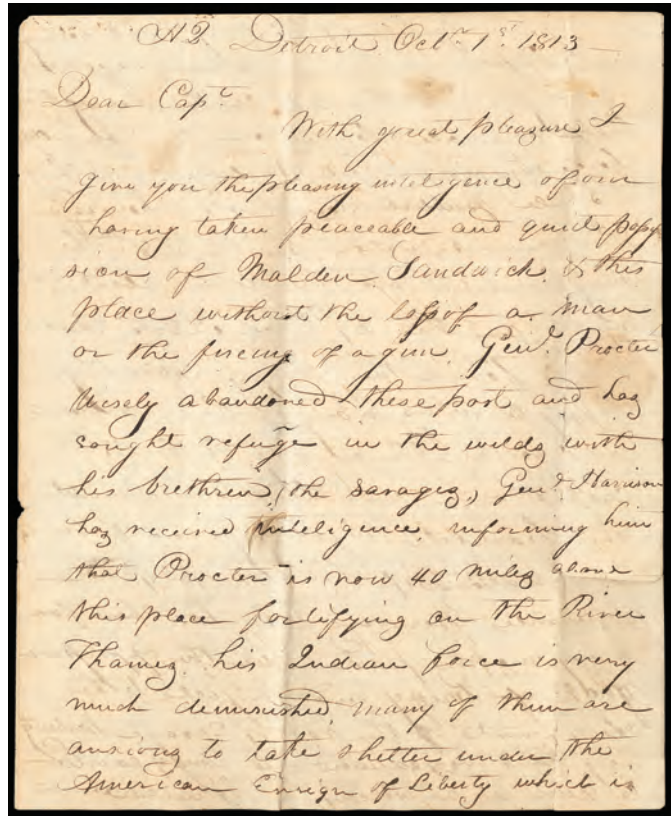 HQ Detroit Octr 1st. 1813
Dear Capt
With great pleasure I
give you the pleasing intelegence of our
having taken peaceable and quiet posses
sion of Malden Sandwich & this
place without the loss of a man
or the fireing of a gun. Genl. Procter
Wisely abandoned these post and has
sought refuge in the wilds with
his brethren, (the Savages,) Genl. Harrison
has received inteligence, informing him
that Procter is now 40 miles above
this place fortifying on the River
Thames his Indian force is very
much deminished, many of them are
anxious to take shelter under the
American Ensign of Liberty which is